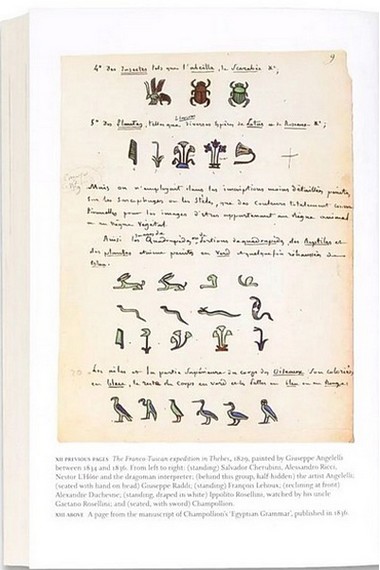 9
4° des Insectes tels que l'abeille, le Scarabée &c,
5° des Plantes, telles que diverses espèces de Lotus et de Roseaux &c;
Mais on n'employait dans les inscriptions moins détaillées, peintes
sur les Sarcophages ou les Stèles, que des couleurs totalement conven-
tionnelles pour les images d'êtres appartenant au règne animal
ou au règne végétal.
Ainsi les Quadrupèdes, de portions de quadrupèdes, des Reptiles et
des plantes étaient peints en verd et quelquefois
bleu.
Les ailes et la partie Supérieure du corps des Oiseaux sont coloriées
en bleu, le reste du corps en verd et les pattes en bleu ou en Rouge.
XII PREVIOUS PAGES The Franco-Tuscan expedition in Thebes, 1829, painted by Giuseppe Angelelli
between 1834 and 1836. From left to right: (standing) Salvador Cherubini, Alessandro Ricci,
Nestor L'Hôte and the dragoman interpreter; (behind this group, half-hidden) the artist Angelelli;
(seated with hand on head) Giuseppe Raddi; (standing) François Lehoux, (reclining at front)
Alexandre Duchesne; (standing, draped in white) Ippolito Rosellini, watched by his uncle
Gaetano Rosellini; and (seated, with sword) Champollion.
XIII ABOVE A page from the manuscript of Champollion's 'Egyptian Grammar', published in 1836